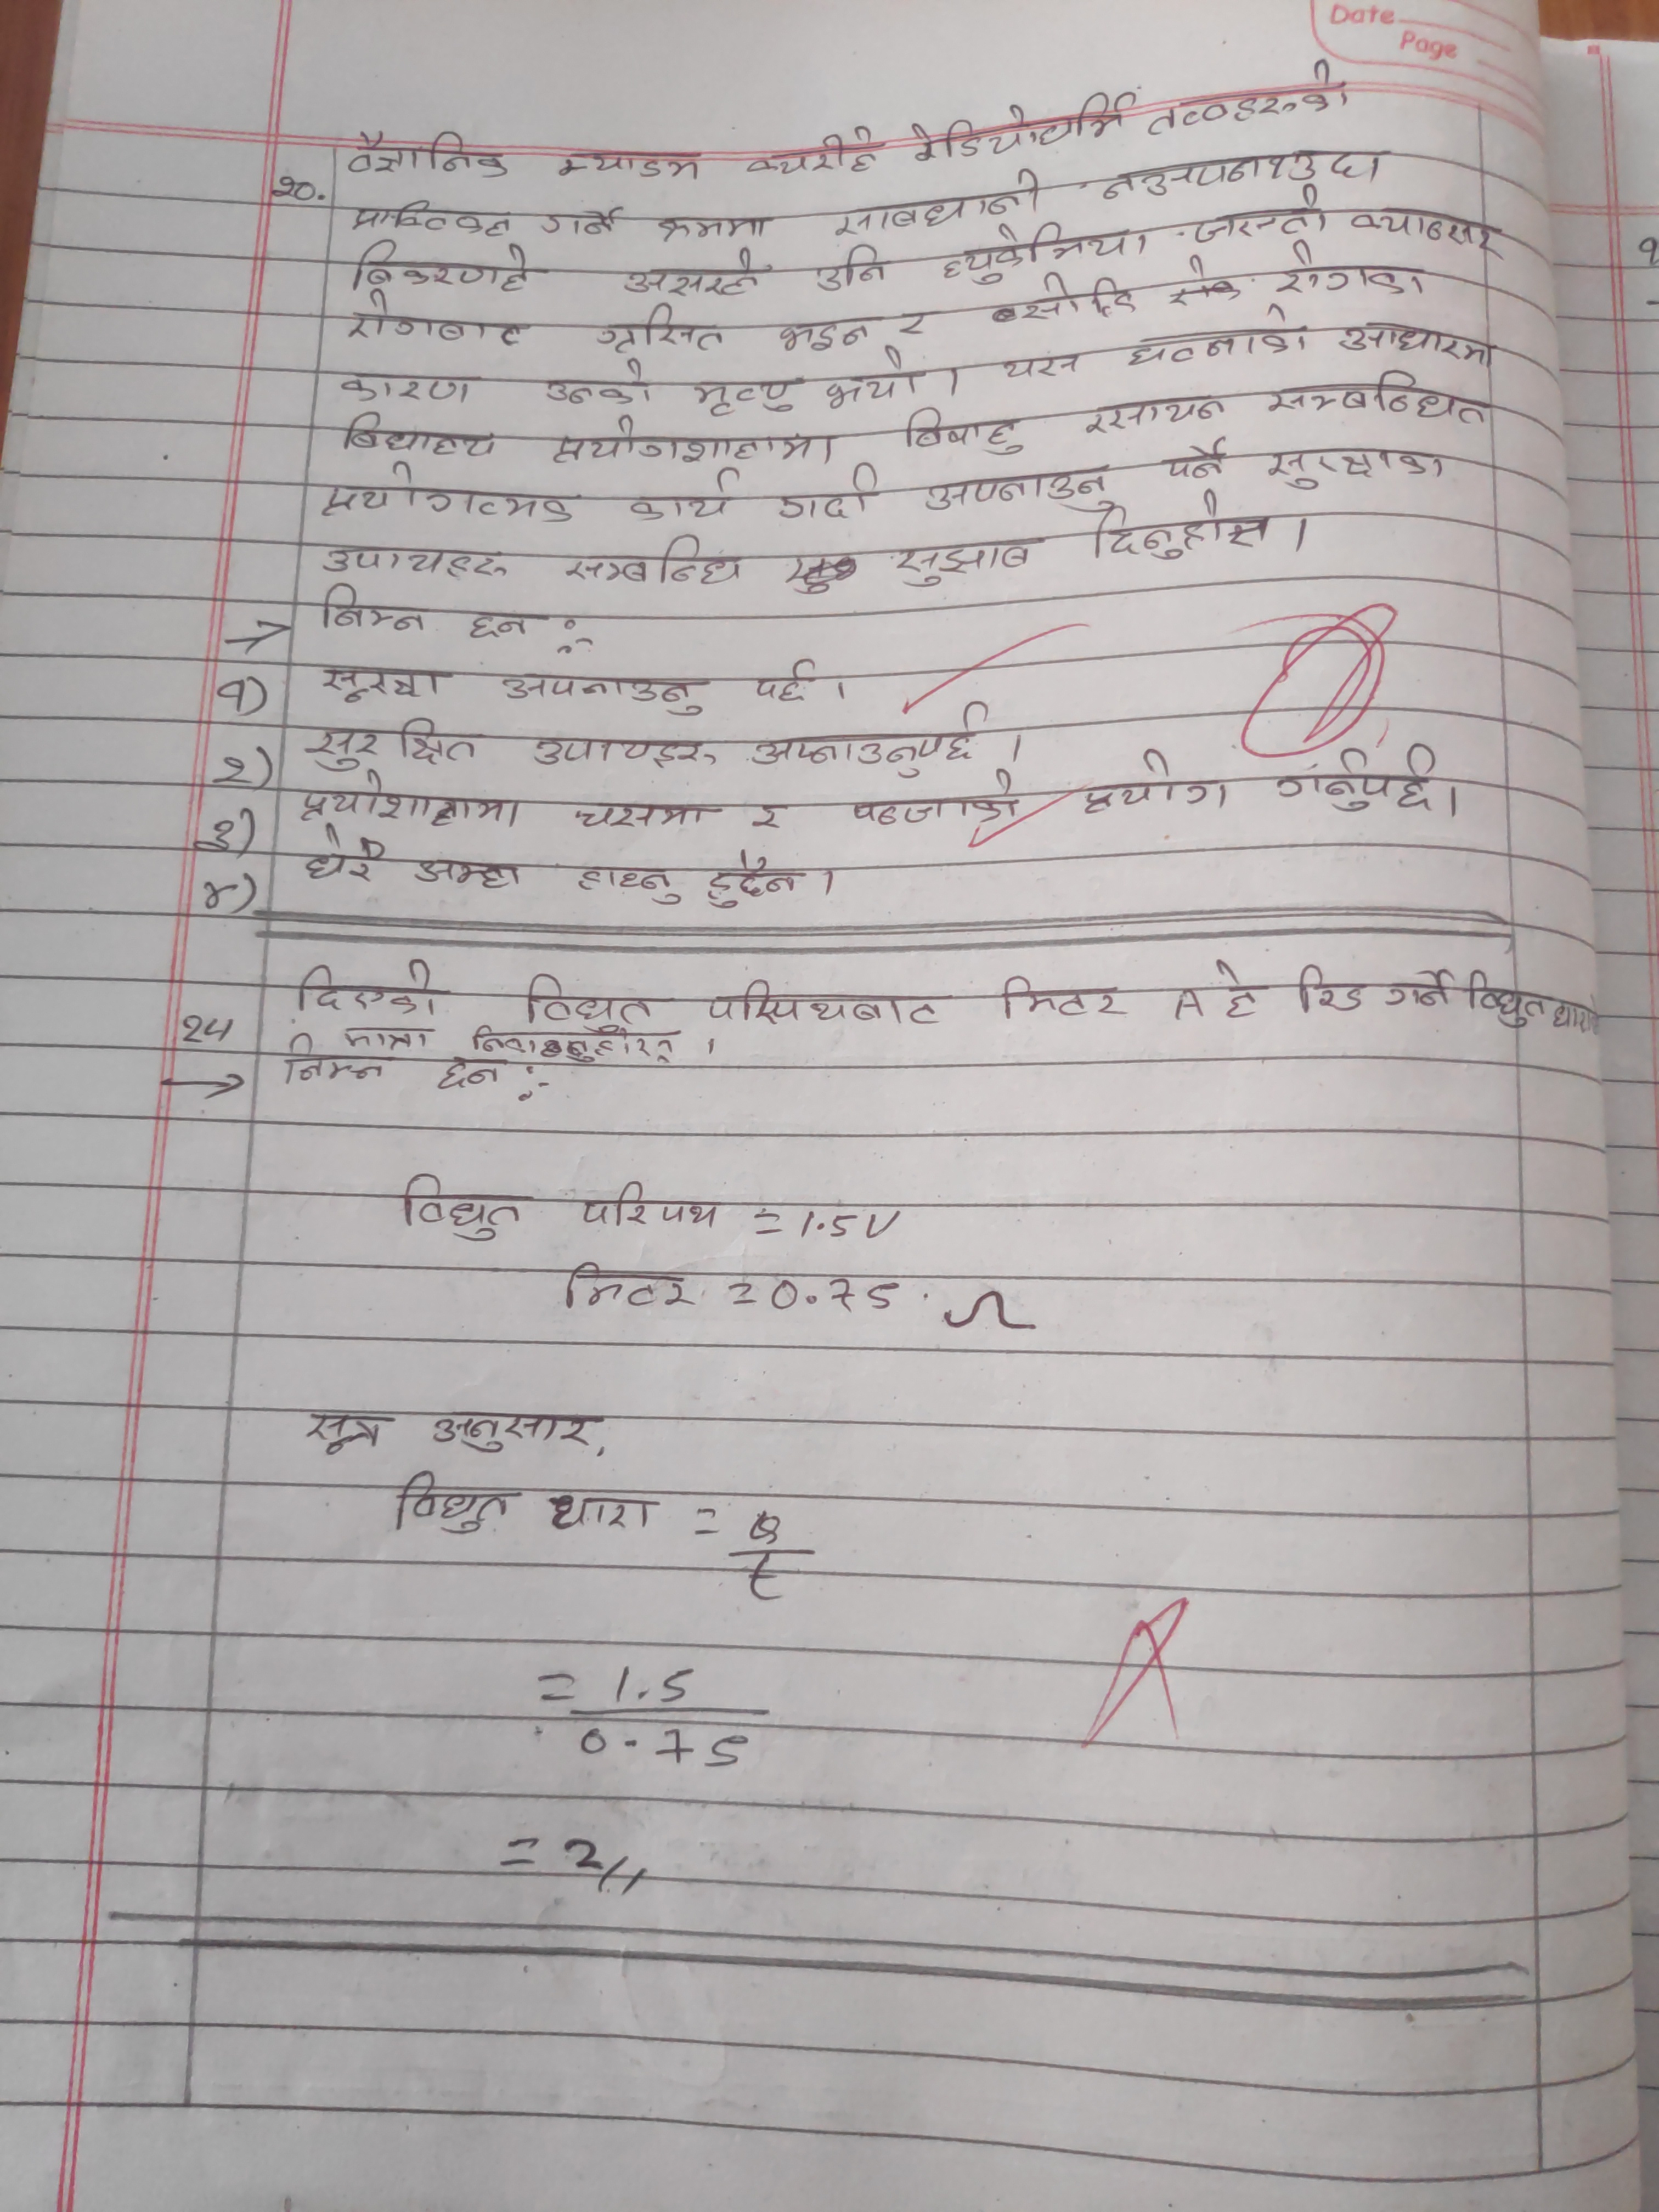 Date
Page
२०. वैज्ञानिक म्याडम क्यूरीले रेडियोधर्मि तत्वहरुको
प्राक्टिकल गर्ने क्रममा सावधानी नअपनाउदा
बिकरणले असरले उनि ल्युकेमिया जस्तो क्यान्सर
रोगबाट ग्रसित भइन र त्सोहि रोगका
कारण उनको मृत्यु भयो। यस घटनाको आधारमा
बिधालय प्रयोगशालामा बिषालु रसायन सम्बन्धित
प्रयोगत्मक कार्य गर्दा अपनाउनु पर्ने सुरक्षाका
उपायहरु सम्बन्धि सुझाब दिनुहोस।
→ निम्न छन :-
१) सूरक्षा अपनाउनु पर्छ।
२) सुरक्षित उपायहरु अप्नाउनुपर्छ।
३) प्रयोशालामा चसमा र पन्जाको प्रयोग गर्नुपर्छ।
४) धेरै अम्ल हाल्नु हुदैन।
२५ दिएको विधुत परिपथबाट मिटर A ले रिड गर्ने विधुत धाराको
मात्रा निकाल्नुहोस्।
→ निम्न छन :-
विधुत परिपथ = 1.5V
मिटर = 0.75 Ω
सूत्र अनुसार,
विधुत धारा = Q
t
= 1.5
0.75
= 2//